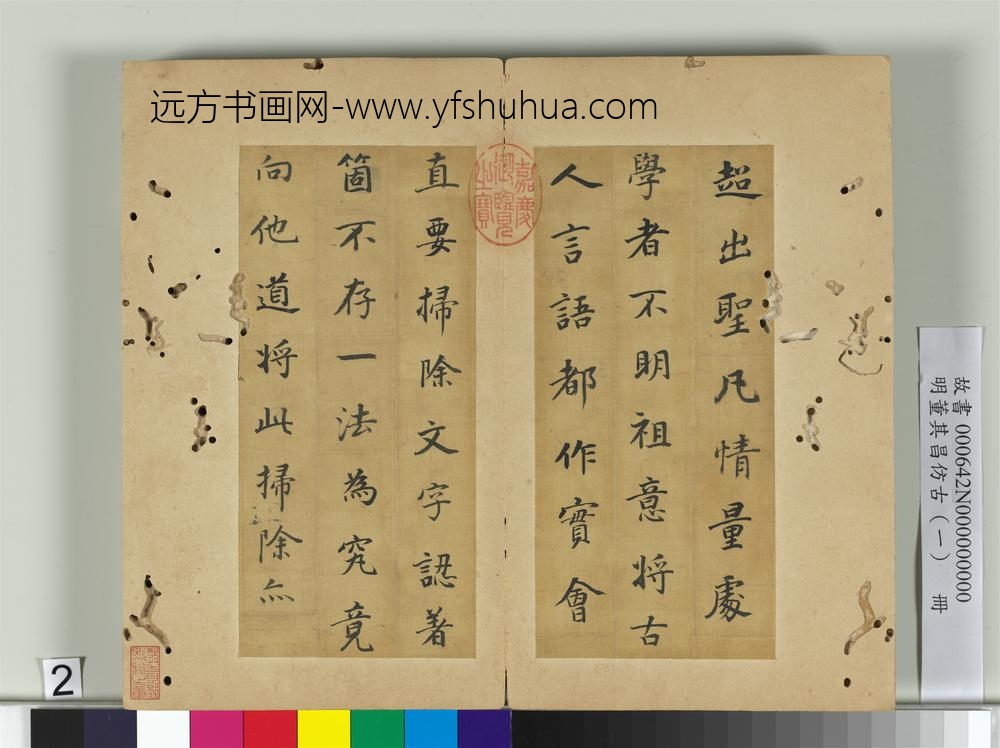 远方书画网-www.yfshuhua.com
超出聖凡情量處
學者不明祖意将古
人言語都作實會
直要掃除文字認著
箇不存一法為究竟
向他道将此掃除亦
嘉慶
御覽
之寶
故書 000642N000000000
明董其昌仿古(一) 冊
2